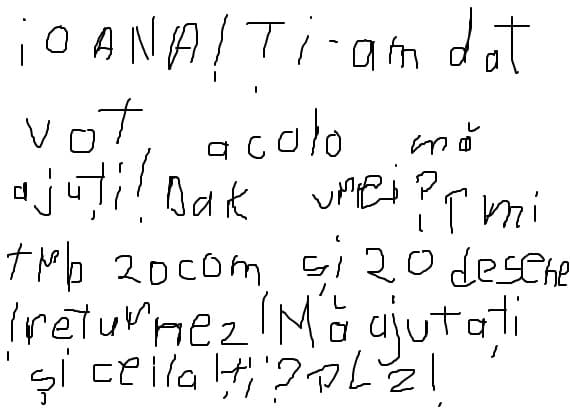 iOANA! Ți-am dat
vot, acolo mă
ajuți! Dak vrei? Tmi
trb 20com și 20 desene
!returnez! Mă ajutați
și ceilalți? pLz!